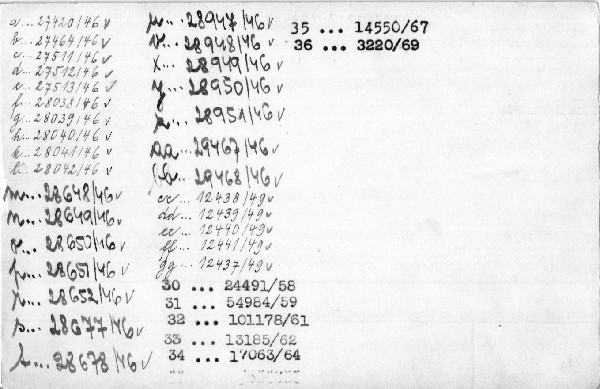 a... 27420/46 v
b... 27464/46 v
c... 27511/46 v
d... 27512/46 v
e... 27513/46 v
f... 28038/46 v
g... 28039/46 v
h... 28040/46 v
k... 28041/46 v
l... 28042/46 v
m... 28648/46 v
n... 28649/46 v
o... 28650/46 v
p... 28651/46 v
r... 28652/46 v
s... 28677/46 v
t... 28678/46 v
u... 28947/46 v
v... 28948/46 v
x... 28949/46 v
y... 28950/46 v
z... 28951/46 v
aa... 29467/46 v
bb... 29468/46 v
cc... 12438/49 v
dd... 12439/49 v
ee... 12440/49 v
ff... 12441/49 v
gg... 12437/49 v
30 ... 24491/58
31 ... 54984/59
32 ... 101178/61
33 ... 13185/62
34 ... 17063/64
35 ... 14550/67
36 ... 3220/69